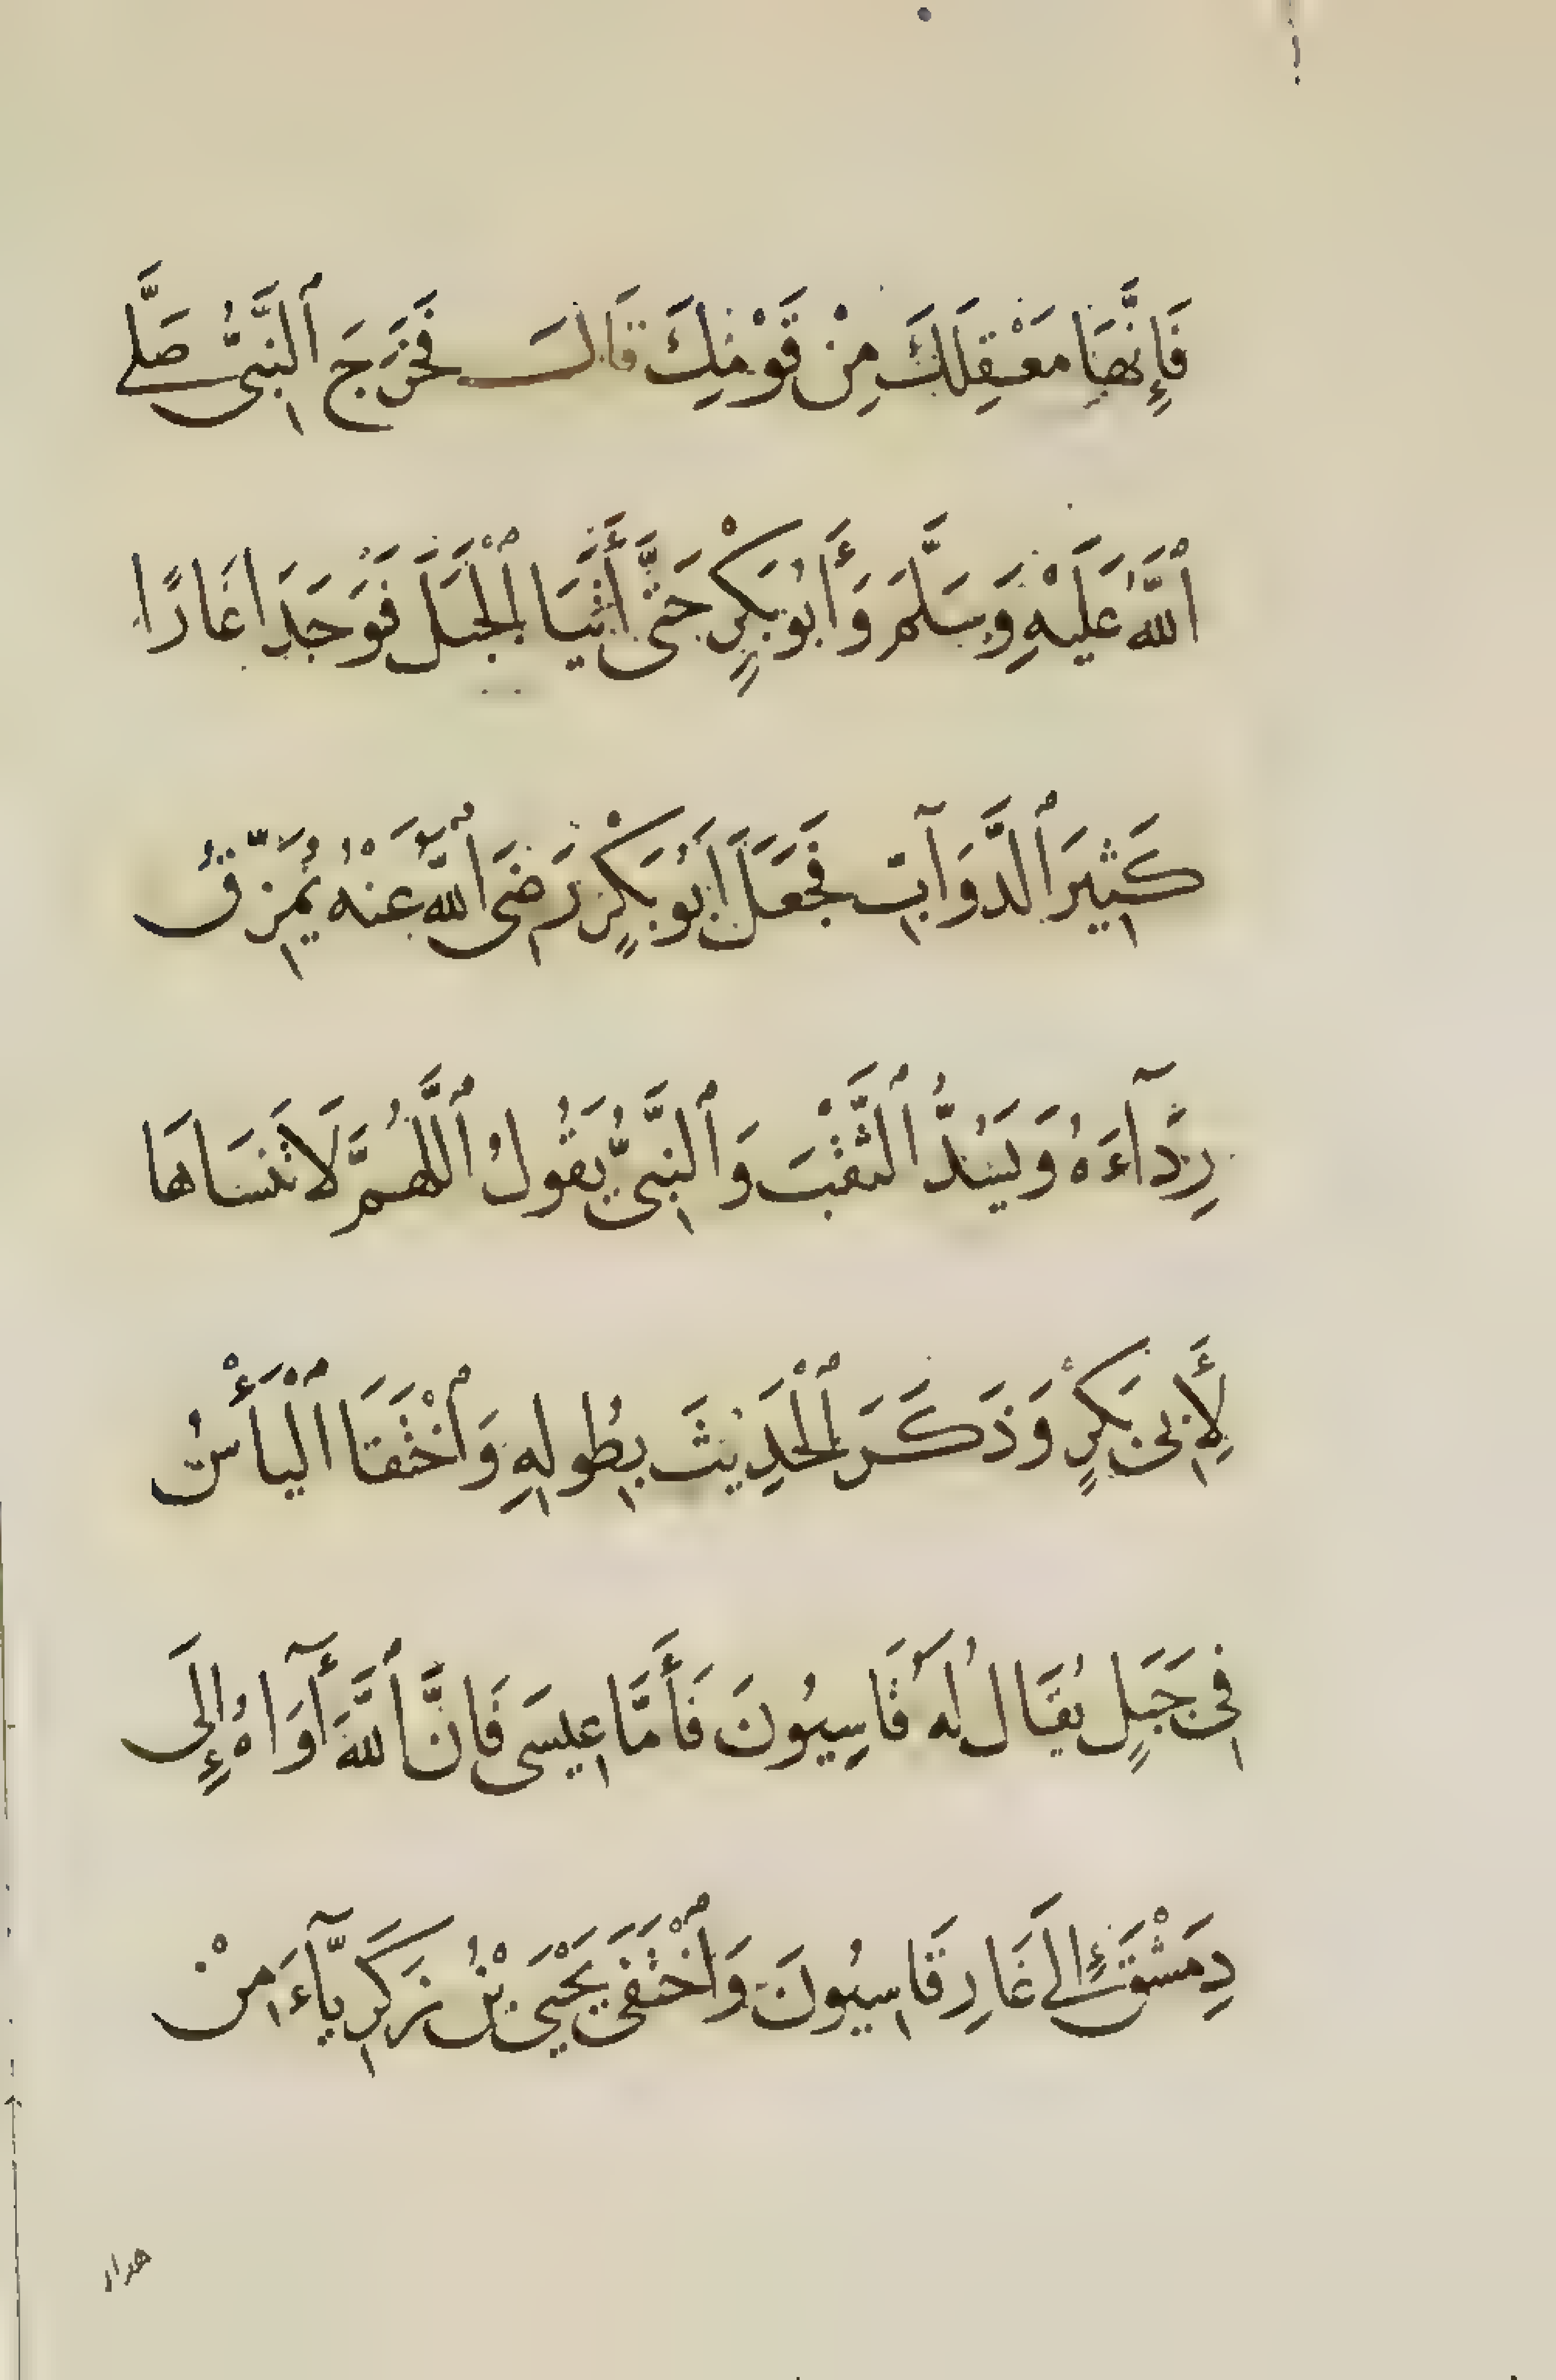 فَإِنَّهَا مَعْقِلَكَ مِنْ قَوْمِكَ قَالَ فَخَرَجَ ٱلنَّبِىُّ صَلَّى
ٱللَّهُ عَلَيْهِ وَسَلَّمَ وَأَبُو بَكْرٍ حَتَّى أَتَيَا ٱلْجَبَلَ فَوَجَدَا غَارًا
كَثِيرَ ٱلدَّوَآبِّ فَجَعَلَ أَبُو بَكْرٍ رَضِىَ ٱللَّهُ عَنْهُ يُمَزِّقُ
رِدَآءَهُ وَيَسُدُّ ٱلثَّقْبَ وَٱلنَّبِىُّ يَقُولُ ٱللَّهُمَّ لَا تَنْسَاهَا
لِأَبِى بَكْرٍ وَذَكَرَ ٱلْحَدِيثَ بِطُولِهِ وَٱخْتَفَا ٱلْيَأْسُ
فِى جَبَلٍ يُقَالُ لَهُ قَاسِيُونَ فَأَمَّا عِيسَى فَإِنَّ ٱللَّهَ أَوَاهُ إِلَى
دِمَشْقَ إِلَى غَارِ قَاسِيُونَ وَٱخْتَفَى يَحْيَى بْنُ زَكَرِيَّآءَ مِنْ